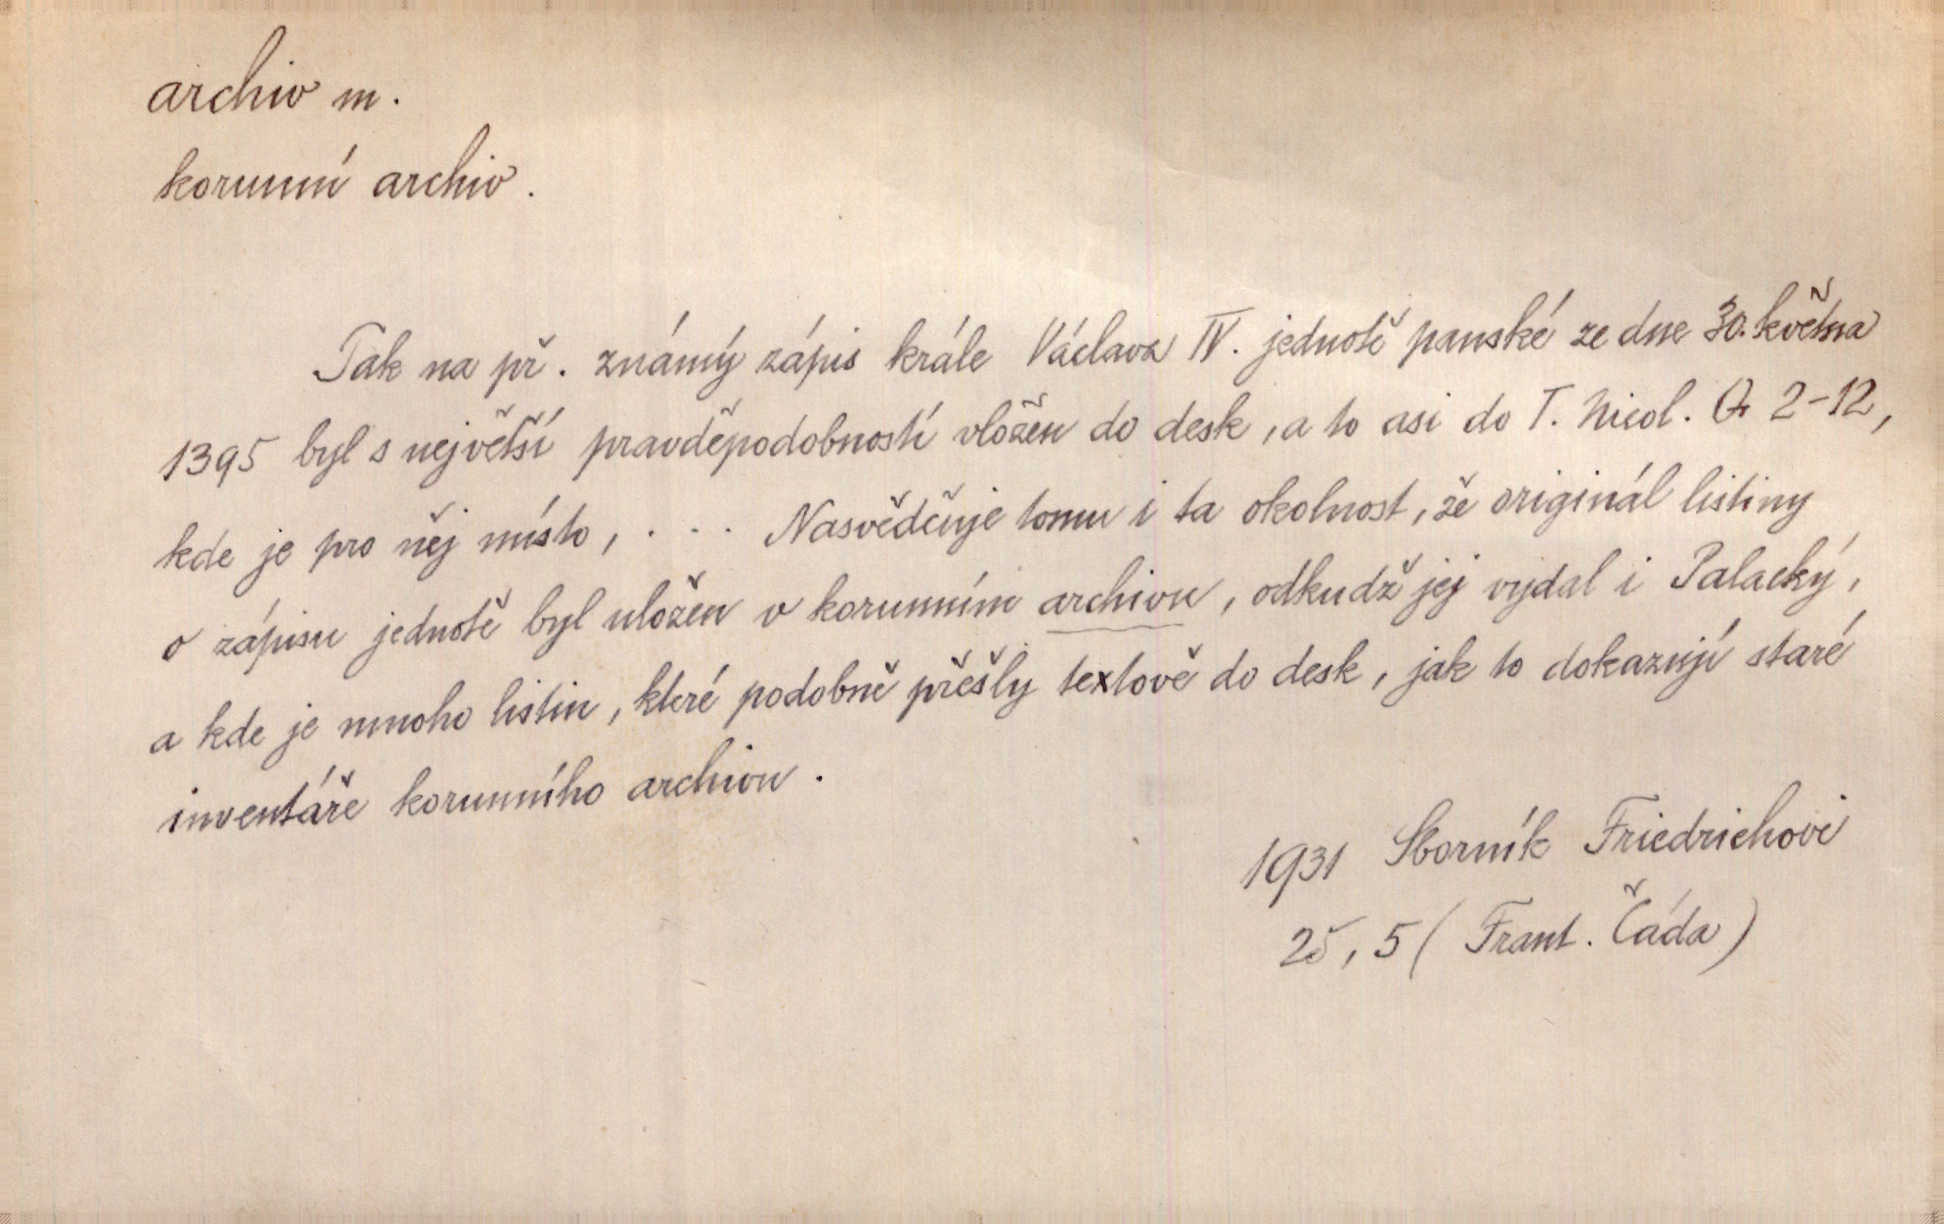 archiv m.
korunní archiv.
Tak na př. známý zápis krále Václava IV. jednotě panské ze dne 30. května
1395 byl s největší pravděpodobností vložen do desk, a to asi do T. Nicol. A 2-12,
kde je pro něj místo, . . . Nasvědčuje tomu i ta okolnost, že originál listiny
o zápisu jednotě byl uložen v korunním archivu, odkudž jej vydal i Palacký,
a kde je mnoho listin, které podobně přešly textově do desk, jak to dokazují staré
inventáře korunního archivu.
1931 Sborník Friedrichovi
25, 5 (Frant. Čáda)